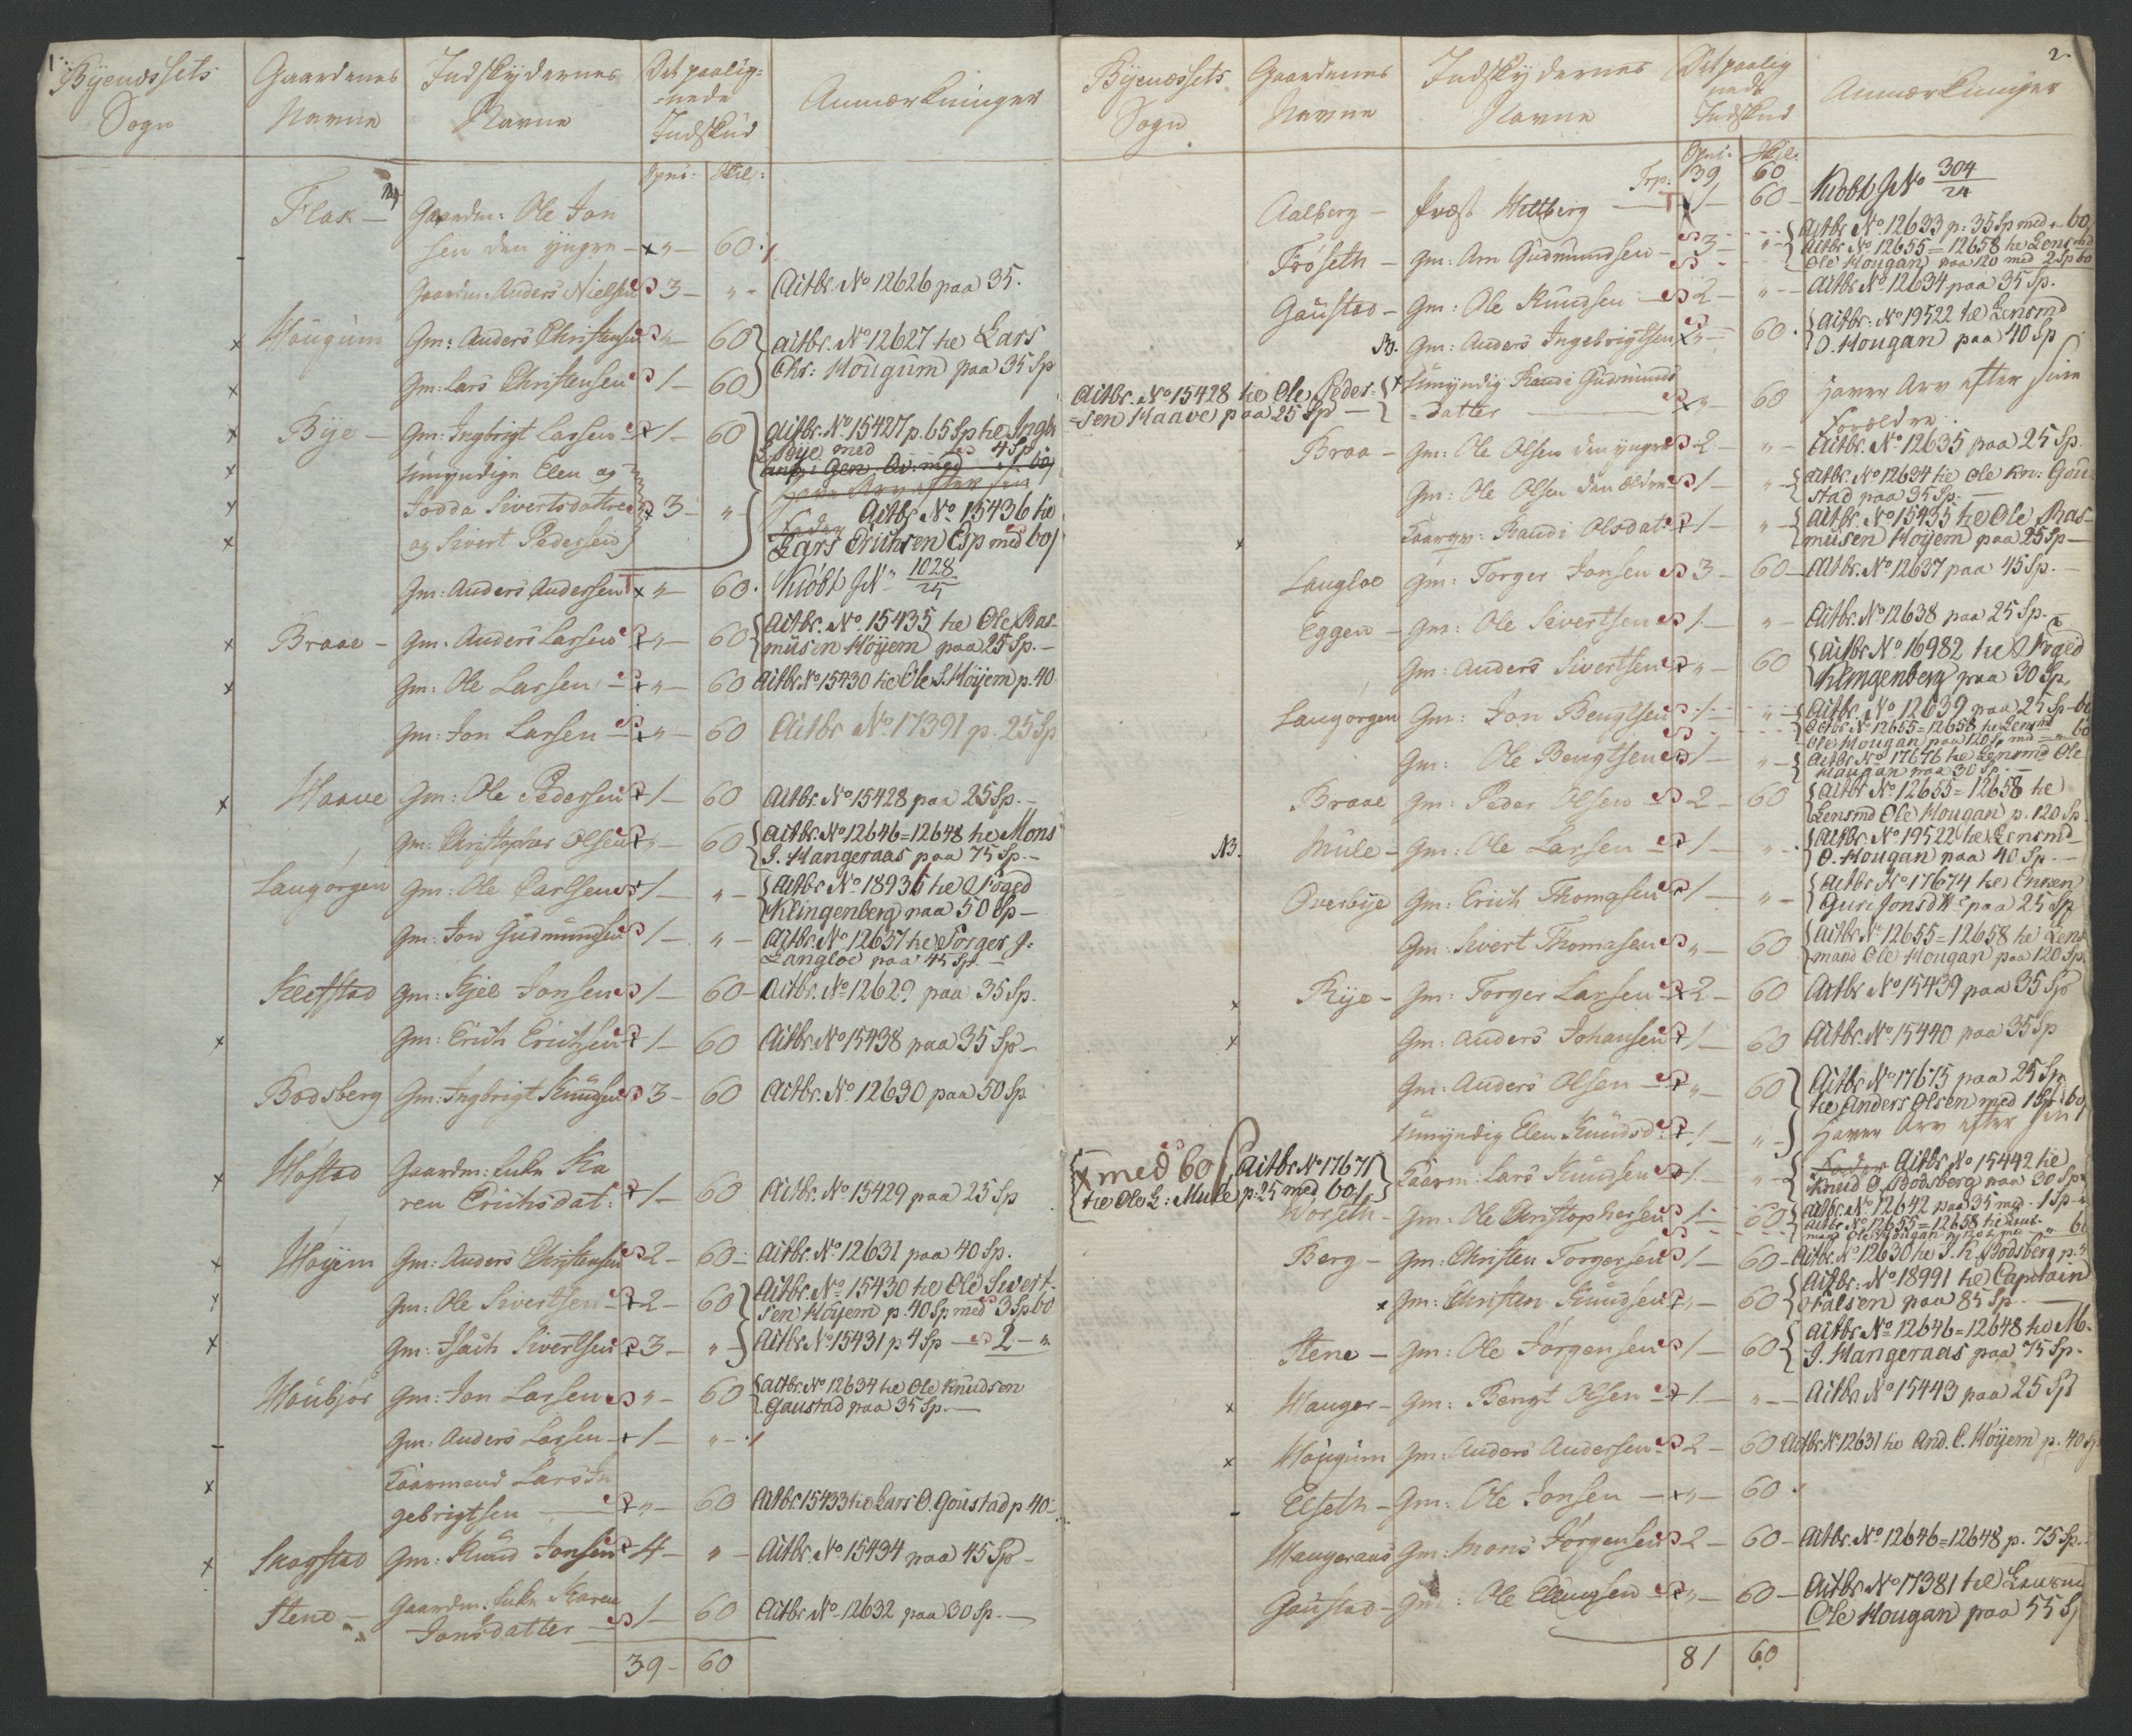 1.
Byenæssets Sogn
Gaardenes Navne
Indskydernes Navne
Det paalignede Indskud
Anmærkninger
Spec: Skil:
Flak — Gaardm: Ole Jon
sen den yngre — x " — 60.
Gaardm: Anders Nielsen 3 — " — Actbr. No 12626 paa 35.
x Hougum Gm: Anders Christensen " — 60 } actbr. No 12627 he Lars
x Gm: Lars Christensen 1 — 60 } Chr: Hougum paa 35 Sp
x Bye — Gm: Ingbrigt Larsen 1 — 60 Actbr. No 15427 p. 65 Sp he Ingbr
L. Bye med 4 Sp
x Umyndige Elen og
x Jodda Sivertsdattre 3 — "
x og Sivert Pedersen
Actbr No 15436 he
Lars Erichsen Esp med 60
Gm: Anders Andersen x " — 60. Kiöbt No 1028/25
x Braae — Gm: Anders Larsen " — 60 { Actbr. No 15435 he Ole Ras-
musen Höyem paa 25 Sp. —
x Gm: Ole Larsen — " — 60 Actbr. No 15430 he Ole S. Höyem p. 40
Gm: Jon Larsen — " — 60 Actbr No 17391 p. 25 Sp
x Haave Gm: Ole Pedersen 1 — 60 Actbr. No 15428 paa 25 Sp. —
Gm: Christopher Olsen " — 60 { Actbr. No 12646=12648 he Mons
J. Hangeraas paa 75 Sp. —
Langörgen Gm: Ole Carlsen 1 — " — { Actbr No 18936 he Foged
Klingenberg paa 50 Sp —
Gm: Jon Gudmundsen 1 — " — Actbr. No 12637 he Torger J:
Langloe paa 45 Sp. —
Klefstad Gm: Kjel Jonsen 1 — 60 — Actbr. No 12629 paa 35 Sp.
x Gm: Erich Erichsen 1 — 60 Actbr. No 15438 paa 35 Sp —
Bodsberg Gm: Ingbrigt Knudsen 3 — 60 Actbr. No 12630 paa 50 Sp
x Höstad Gaardm: Enke Ka
ren Erichsdat: 1 — 60 Actbr. No 15429 paa 25 Sp
x Höyem Gm: Anders Christensen 2 — 60 — Actbr. No 12631 paa 40 Sp.
x Gm: Ole Sivertsen — 2 — 60 } Actbr. No 15430 he Ole Sivert-
sen Höyem p. 40 Sp med 3 Sp 60
x Gm: Isach Sivertsen 3 — " } Actbr. No 15431 p 4 Sp — 2 — "
Haubjör Gm: Jon Larsen " — 60 { actbr. No 12634 he Ole Knudsen
Gaustad paa 35 Sp. —
Gm: Anders Larsen — 1 — " —
x Kaarmand Lars In
gebrigtsen — " — 60 Actbr 15433 he Lars O. Goustad p. 40 —
x Skogstad Gm: Knud Jonsen 4 — " — Actbr. No 15434 paa 45 Sp —
Stene — Gaardm: Enke Karen
Jonsdatter — 1 — 60 Actbr. No 12632 paa 30 Sp. —
39 — 60
2.
Byenæssets Sogn
Gaardenes Navne
Indskydernes Navne
Det paalignede Indskud
Anmærkninger
Spec: Skil:
Trp: 39 60
Aalberg — Præst Hettberg — 1 — 60 — Kiobt No 304/24
Fröseth — Gm: Arn Gudmundsen — 3 — " — { Actbr No 12633 p: 35 Sp med " 60
Actbr. No 12655=12658 he Lensmd
Ole Hougan paa 120 med 2 Sp 60
Gaustad — Gm: Ole Knudsen — 2 — " — Actbr. No 12634 paa 35 Sp.
NB. Gm: Anders Ingebrigtsen " — 60. { Actbr: No 19522 he Lensmd
O. Hougan paa 40 Sp
Actbr. No 15428 he Ole Peder- {x Umyndig Randi Gudmunds
=sen Haave paa 25 Sp — { -datter — " 60 Haver Arv efter sine
Forældre.
Braa — Gm: Ole Olsen den yngre 2 — " — Actbr. No 12635 paa 25 Sp.
Gm: Ole Olsen den ældre 1 — " — { actbr. No 12634 he Ole Kn: Gou-
stad paa 35 Sp. —
x Kaarqv: Randi Olsdat 1 — " — { Actbr. No 15435 he Ole Ras-
musen Höyem paa 25 Sp —
Langloe Gm: Torger Jonsen 3 — 60 — Actbr. No 12637 paa 45 Sp. —
Eggen — Gm: Ole Sivertsen 1 — " — Actbr. No 12638 paa 25 Sp. —
Gm: Anders Sivertsen " — 60 { Actbr No 16982 he Foged
Klingenberg paa 30 Sp,
Langörgen Gm: Jon Bengtsen 1 — " — { Actbr. No 12639 paa 25 Sp — 60
Actbr. No 12655=12658 he Lensmd
Ole Hougan paa 120 Sp med — " 60
Gm: Ole Bengtsen 1 — " — { Actbr No 17676 he Lensmd Ole
Hougan paa 30 Sp. —
Braae Gm: Peder Olsen 2 — 60 { Actbr No 12655=12658 he
Lensmd Ole Hougan p. 120 Sp.
NB. Mule — Gm: Ole Larsen — 1 — " — { Actbr. No 19522 he Lensmd
O. Hougan paa 40 Sp. —
Overbye Gm: Erich Thomasen 1 — " — { Actbr No 17674 he Enken
Guri Jonsdtr paa 25 Sp
Gm: Sivert Thomasen " — 60 { Actbr No 12655=12658 he Lens
mand Ole Hougan paa 120 Sp.
x Rye — Gm: Torger Larsen 2 — 60 Actbr No 15439 paa 35 Sp
x Gm: Anders Johansen 1 — 60 Actbr. No 15440 paa 35 Sp
Gm: Anders Olsen — " — 60 } Actbr No 17675 paa 25 Sp
he Anders Olsen med 1 Sp 60
Umyndig Elen Knudsd: 1 — " — } Haver Arv efter sin
Fader
{ x med 60 Actbr No 17671 } Kaarm: Lars Knudsen 1 — " — { Actbr. No 15442 he
{ he Ole L: Mule p. 25 med 60 Knud O. Bodsberg paa 30 Sp
Worseth — Gm: Ole Christophersen 1 — 60 { actbr. No 12642 paa 35 med 1 Sp "
Actbr No 12655=12658 he Lens-
mand Ole Hougan p. 120 Sp med " 60
Berg — Gm: Christen Torgersen 1 — 60 — Actbr. No 12630 he I. K. Bodsberg p. 5
x Gm: Christen Knudsen " — 60 { Actbr: No 18991 he Captain
Falsen paa 85 Sp. —
Stene — Gm: Ole Jörgensen 1 — 60 { Actbr No 12646=12648 he M.
J. Hangeraas paa 75 Sp.
x Hanger — Gm: Bengt Olsen — 1 — " — Actbr. No 15443 paa 25 Sp
x Hougum Gm: Anders Andersen 2 — 60 Actbr No 12631 he And. C. Höyem p. 40 Sp
Elseth — Gm: Ole Jonsen — " — 60.
Hangeraas Gm: Mons Jörgensen 2 — 60 — Actbr. No 12646=12648 p. 75 Sp. —
Gaustad — Gm: Ole Ellingsen — " — 60 — Actbr. No 17381 he Lensmd
Ole Hougan paa 55 Sp
81 60